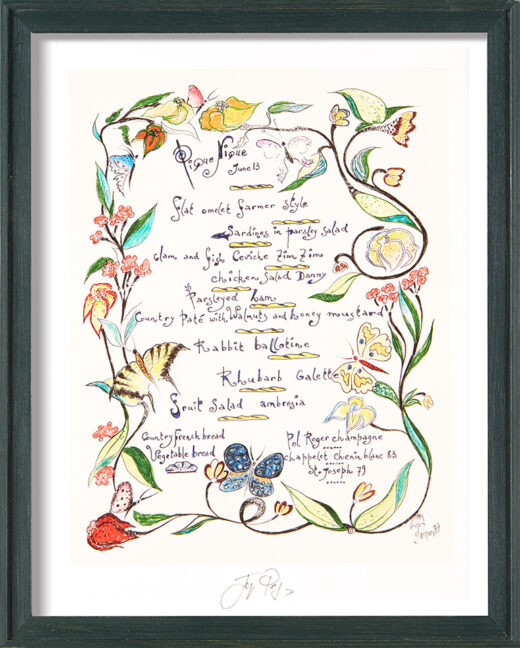 Pique Nique
June 13
flat omelet farmer style
Sardines in parsley salad
Clam and fish Ceviche Zim Zims
chicken Salad Danny
Parsleyed ham
Country Paté with Walnuts and honey mustard
Rabbit ballotine
Rhubarb Galette
Fruit Salad ambrosia
Country French bread
Vegetable bread
Pol Roger champagne
chappelet Chenin blanc 83
St. Joseph 79